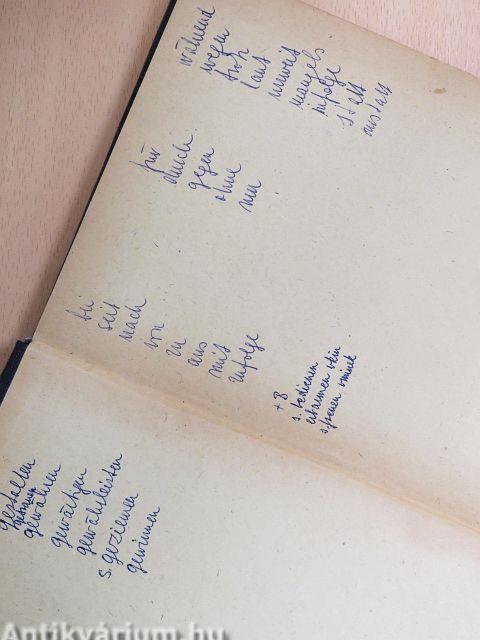 während
wegen
trotz
laut
unweit
mangels
infolge
statt
anstatt
für
durch
gegen
ohne
um
bei
seit
nach
von
zu
aus
mit
zufolge
s. bedienen
erbarmen
s. freuen
gestatten
gewähren
gewärtigen
gewährleisten
s. geziemen
gewinnen
Antikvárium.hu